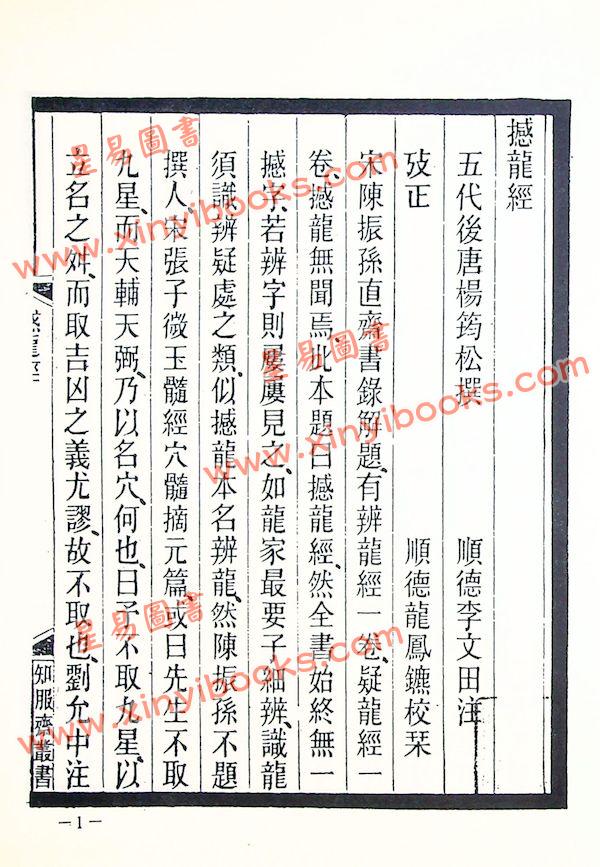 撼龍經
五代後唐楊筠松撰 順德李文田注
攷正 順德龍鳳鑣校栞
宋陳振孫直齋書錄解題、有辨龍經一卷、疑龍經一
卷、撼龍無聞焉、此本題曰撼龍經、然全書始終無一
撼字、若辨字則屢屢見之、如龍家最要子細辨、識龍
須識辨疑處之類、似撼龍本名辨龍、然陳振孫不題
撰人、宋張子微玉髓經穴髓摘元篇、或曰先生不取
九星、而天輔天弼、乃以名穴、何也、曰予不取九星、以
立名之舛、而取吉凶之義尤謬、故不取也、劉允中注
撼龍經
知服齋叢書
—1—
星易圖書
www.xinyibooks.com
星易圖書
www.xinyibooks.com
星易圖書
www.xinyibooks.com